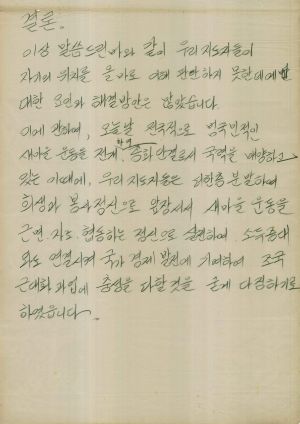 결론.
이상 말씀드린바와 같이 우리지도자들이
자기의 위치를 올바로 판단하지 못한데에
대한 요인과 해결방안은 많았습니다.
이에 관하여, 오늘날 전국적으로 범국민적인
새마을 운동을 전개 총화안결로서 국력을 배양하고
있는 이때에, 우리지도자들은 분발하여
희생과 봉사정신으로 앞장서서 새마을 운동을
근면 자조 협동하는 정신으로 실천하여 소득증대
와도 연결시켜 국가 경제 발전에 기여하여 조국
근대화 과업에 충성을 다할것을 굳게 다짐하기로
하였읍니다.